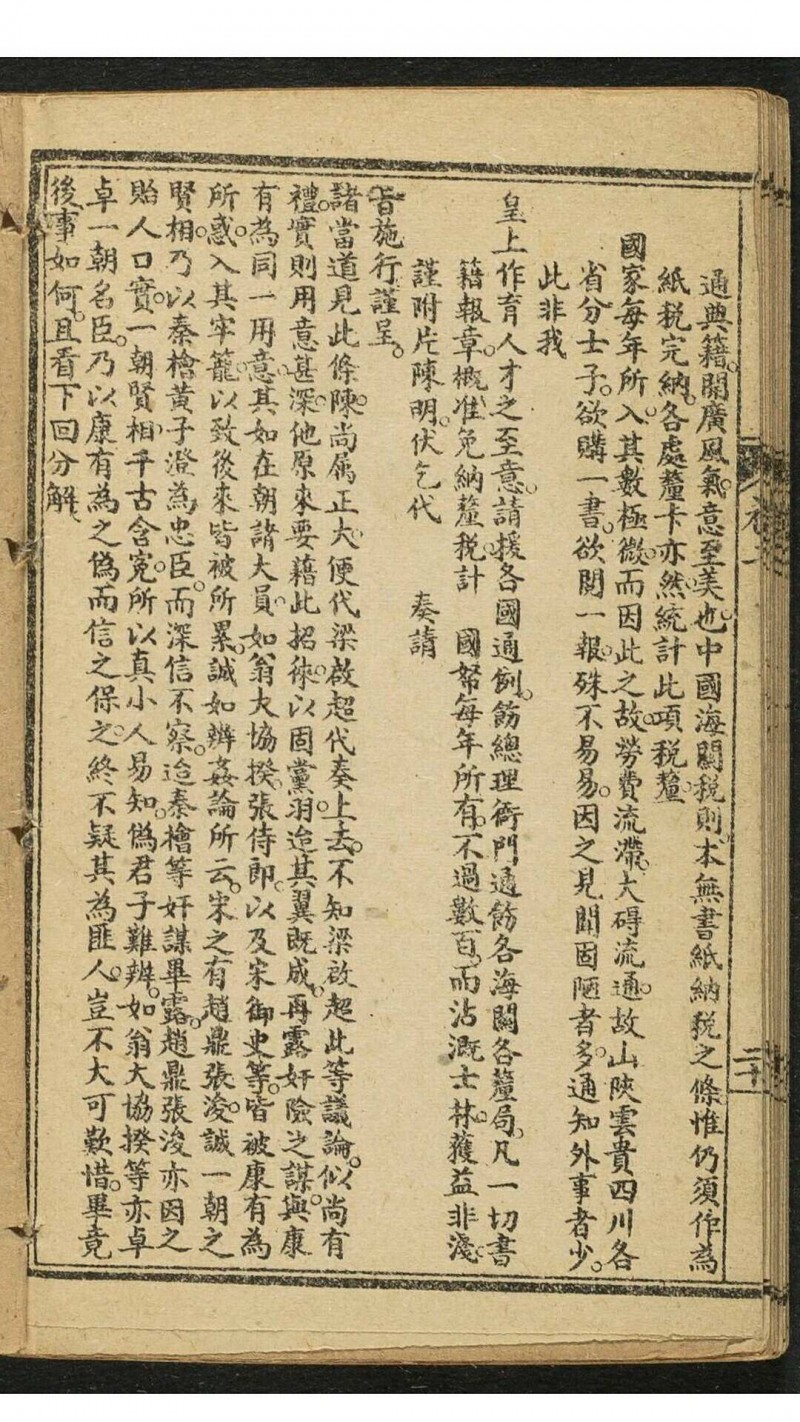 通典籍。開廣風氣。意至美也。中國海關税則。本無書紙納税之條惟仍須作為
紙税完納。各處釐卡亦然。統計此項税釐。
國家每年所入。其數極微。而因此之故。勞費流滯。大碍流通。故山陝雲貴四川各
省分士子。欲購一書。欲閱一報。殊不易易。因之見聞固陋者多。通知外事者少。
此非我
皇上作育人才之至意。請援各國通例。飭總理衙門通飭各海關各釐局。凡一切書
籍報章。概准免納釐税。計　國帑每年所有。不過數百。而沾溉士林。獲益非淺。
謹附片陳明。伏乞代　　奏請
旨施行。謹呈。
諸當道見此條陳。尚属正大。便代梁啟超代奏上去。不知梁啟超此等議論。似尚有
禮。實則用意甚深。他原來要藉此招徠。以固黨羽。迨其翼既成。再露奸險之謀。與康
有為同一用意。其如在朝諸大員。如翁大協揆。張侍郎。以及宋御史等。皆被康有為
所惑。入其牢籠。以致後來皆被所累。誠如辨姦論所云。宋之有趙鼎張浚。誠一朝之
賢相。乃以秦檜黃子澄為忠臣。而深信不察。迨秦檜等奸謀畢露。趙鼎張浚亦因之
貽人口實。一朝賢相。千古含冤。所以真小人易知。偽君子難辨。如翁大協揆等亦卓
卓一朝名臣。乃以康有為之偽而信之保之。終不疑其為匪人。豈不大可歎惜。畢竟
後事如何。且看下回分解、
卷一
二十